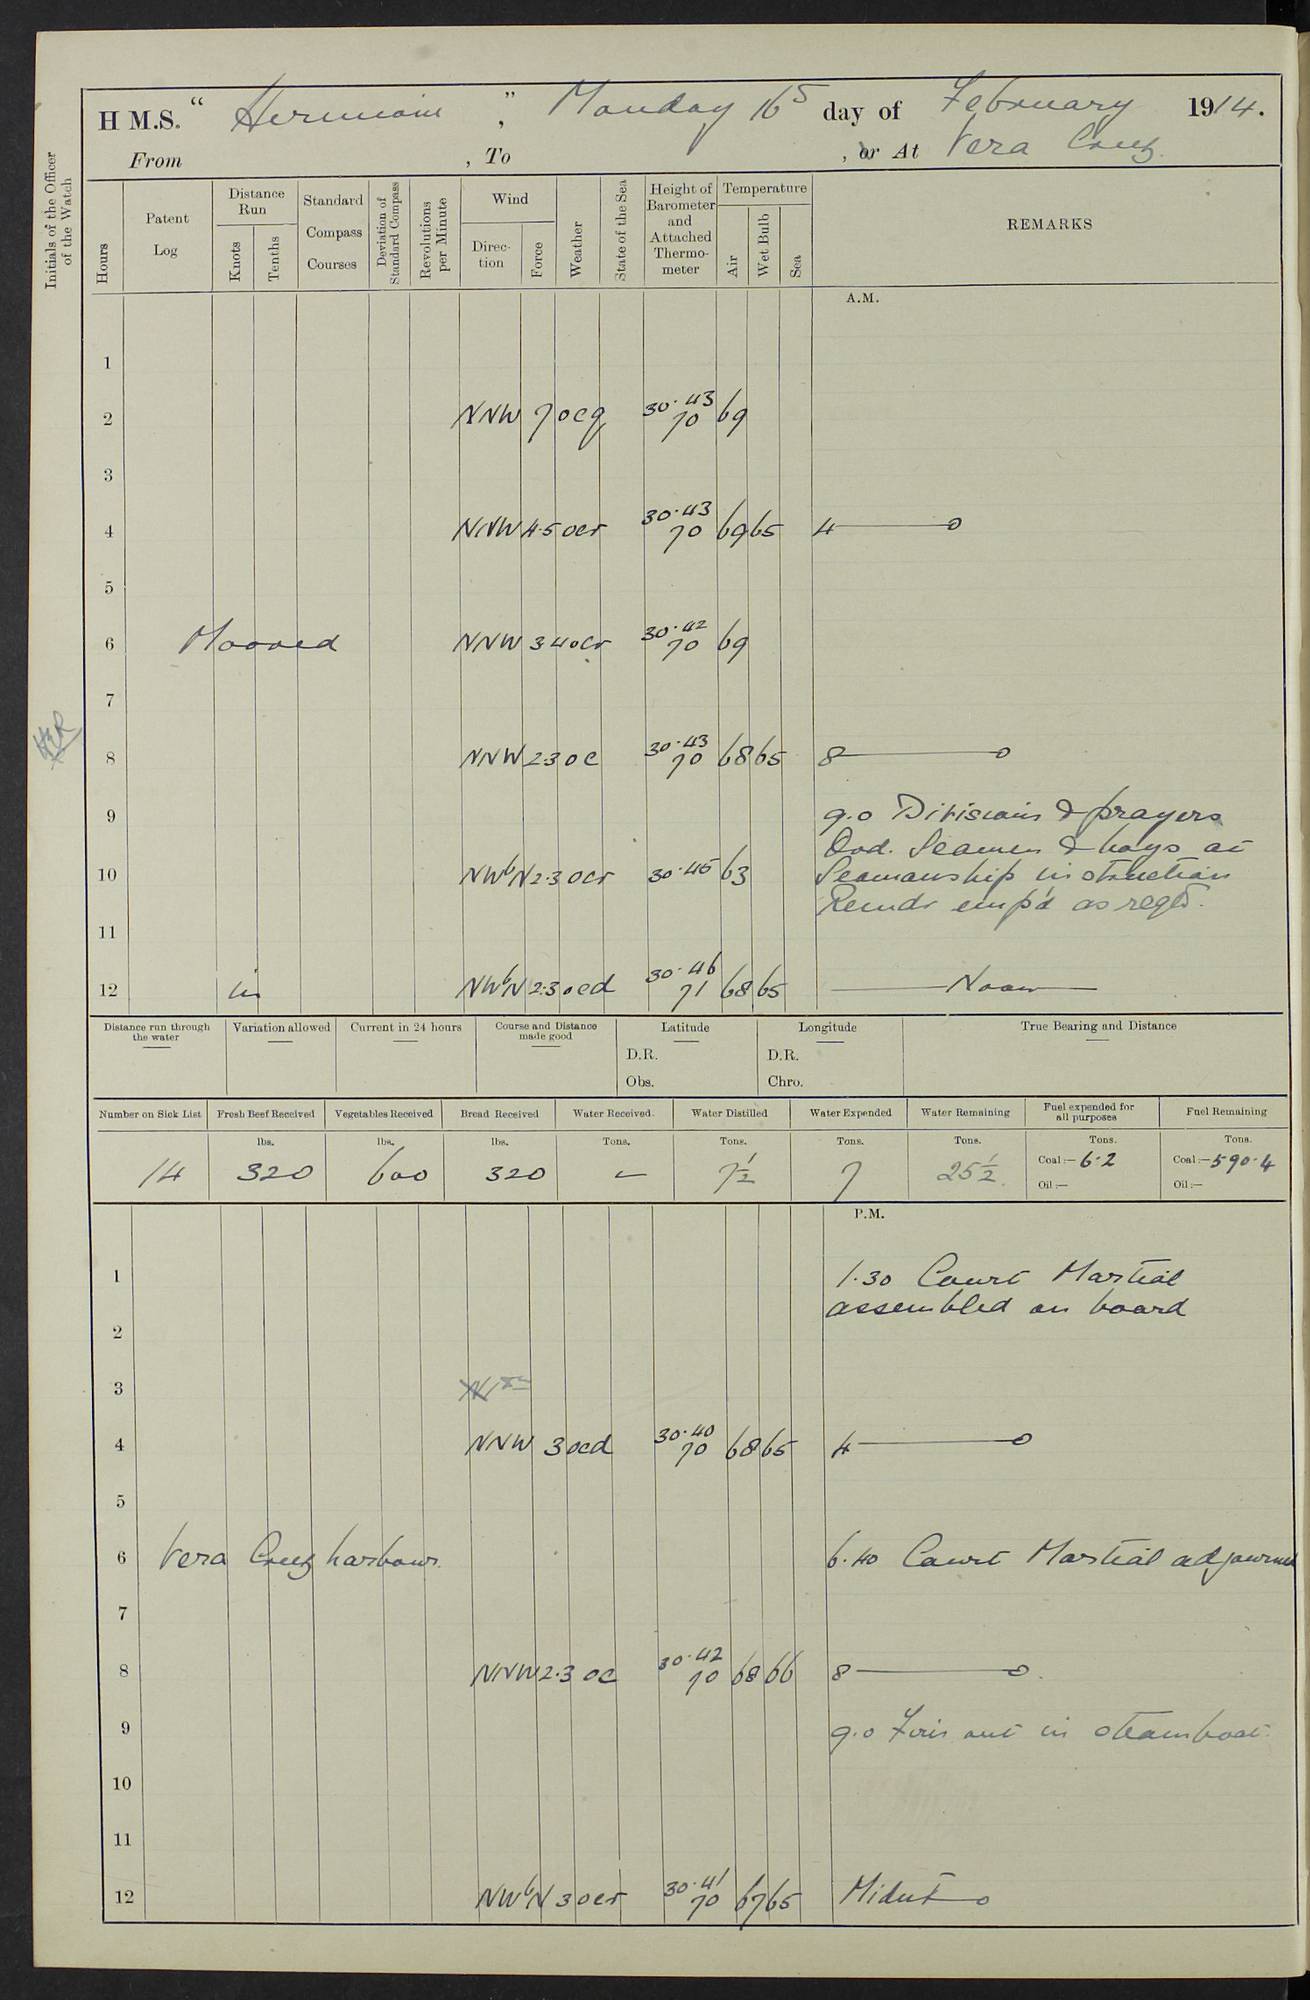 H M.S. " Hermione , " Monday 16th day of February 1914.
From , To , or At Vera Cruz.
Initials of the Officer of the Watch
Hours
Patent Log
Distance Run
Knots
Tenths
Standard Compass Courses
Deviation of Standard Compass
Revolutions per Minute
Wind
Direction
Force
Weather
State of the Sea
Height of Barometer and Attached Thermometer
Temperature
Air
Wet Bulb
Sea
REMARKS
A.M.
1
2 NNW 7 ocq 30.43 70 69
3
4 NNW 4.5 ocr 30.43 70 69 65 4 ———o
5
6 Moored NNW 3 4 ocr 30.42 70 69
7
8 NNW 2.3 oc 30.43 70 68 65 8 ———o
9 9.0 Divisions & prayers
Ord. Seamen & boys at
10 NWbN 2.3 ocr 30.45 63 Seamanship instruction
Remdr emp'd as reqd.
11
12 in NWbN 2.3 ocd 30.46 71 68 65 ——— Noon ———
Distance run through the water
Variation allowed
Current in 24 hours
Course and Distance made good
Latitude
D.R.
Obs.
Longitude
D.R.
Chro.
True Bearing and Distance
Number on Sick List Fresh Beef Received Vegetables Received Bread Received Water Received. Water Distilled Water Expended Water Remaining Fuel expended for all purposes Fuel Remaining
lbs. lbs. lbs. Tons. Tons. Tons. Tons. Tons. Tons.
14 320 600 320 – 7½ 7 25½ Coal:– 6.2 Coal:– 590.4
Oil:– Oil:–
P.M.
1 1.30 Court Martial
assembled on board
2
3
4 NNW 3 ocd 30.40 70 68 65 4 ———o
5
6 Vera Cruz harbour. 6.40 Court Martial adjourned
7
8 NNW 2.3 oc 30.42 70 68 66 8 ———o.
9 9.0 Fires out in steamboat.
10
11
12 NWbN 3 ocr 30.41 70 67 65 Midnt —o